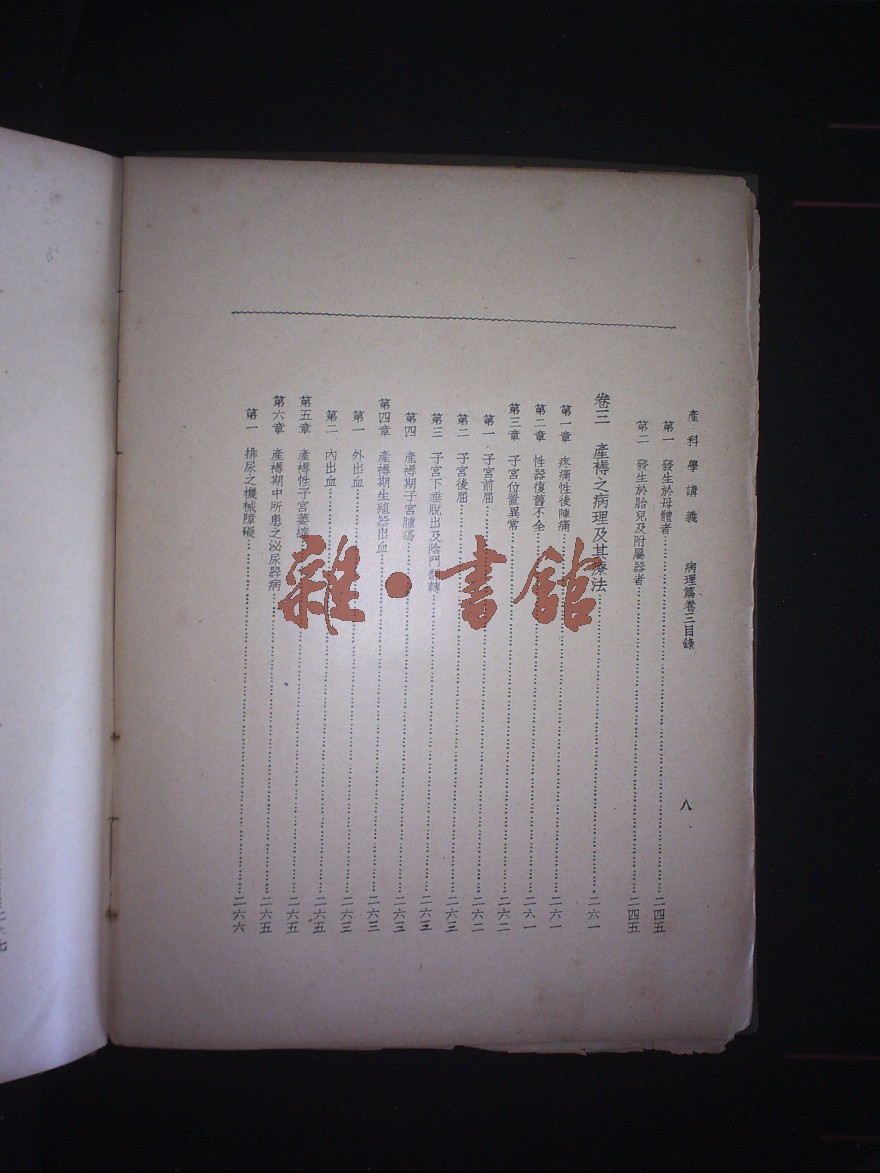 產科學講義 病理篇卷三目錄 八
第一 發生於母體者 二四五
第二 發生於胎兒及附屬器者 二四五
卷三 產褥之病理及其療法 二六一
第一章 疼痛性後陣痛 二六一
第二章 性器復舊不全 二六一
第三章 子宮位置異常 二六二
第一 子宮前屈 二六二
第二 子宮後屈 二六三
第三 子宮下垂脫出及陰門翻轉 二六三
第四 產褥期子宮腫瘍 二六三
第四章 產褥期生殖器出血 二六三
第一 外出血 二六三
第二 內出血 二六五
第五章 產褥性子宮萎縮 二六五
第六章 產褥期中所患之泌尿器病 二六五
第一 排尿之機械障礙 二六六
雜·書館